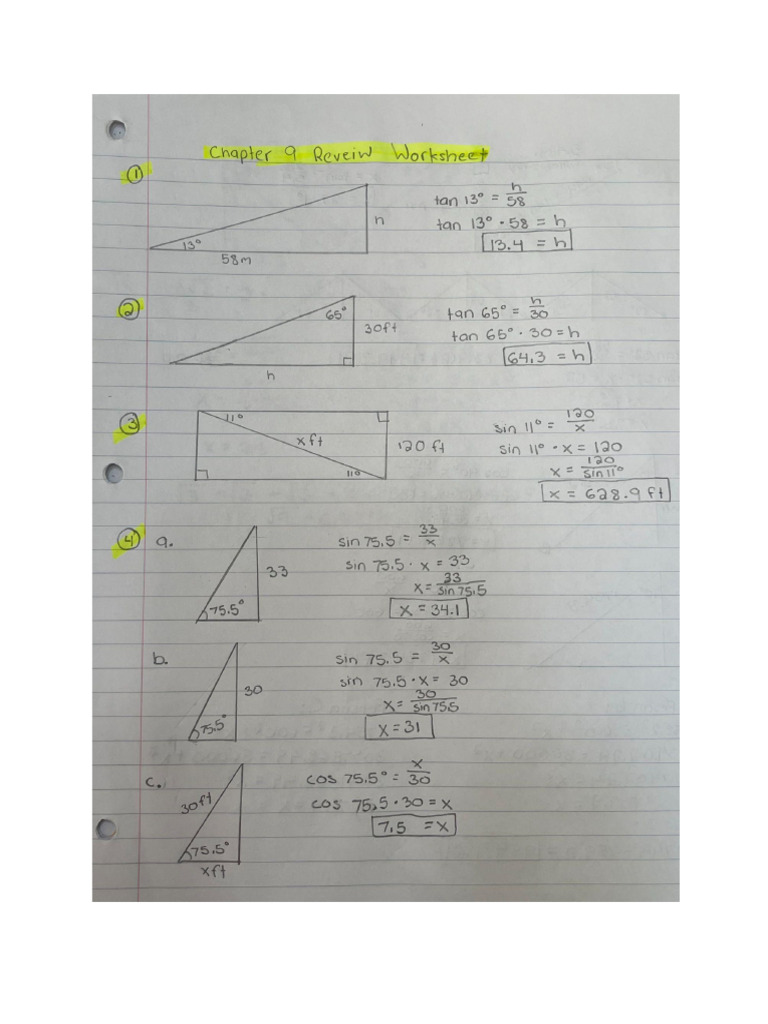 Chapter 9 Reveiw Worksheet
1
13°
58m
h
tan 13° = h/58
tan 13° · 58 = h
13.4 = h
2
65°
30ft
h
tan 65° = h/30
tan 65° · 30 = h
64.3 = h
3
11°
x ft
11°
120 ft
sin 11° = 120/x
sin 11° · x = 120
x = 120/sin 11°
x = 628.9 ft
4 a.
75.5°
33
sin 75.5 = 33/x
sin 75.5 · x = 33
x = 33/sin 75.5
x = 34.1
b.
75.5°
30
sin 75.5 = 30/x
sin 75.5 · x = 30
x = 30/sin 75.5
x = 31
c.
30ft
75.5°
xft
cos 75.5° = x/30
cos 75.5 · 30 = x
7.5 = x